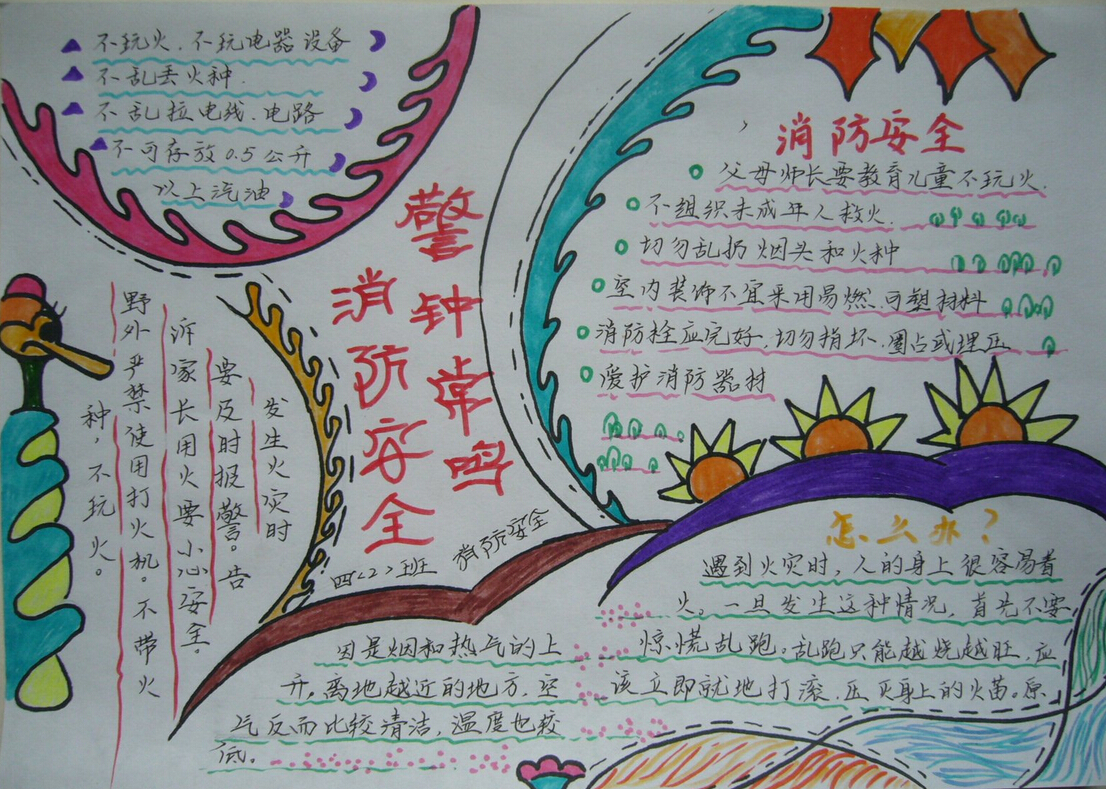 不玩火．不玩电器设备
不乱丢火种．
不乱拉电线．电路
不可存放0.5公升
以上汽油
警钟常鸣
消防安全
四〈2〉班
消防安全
发生火灾时
要及时报警。告
诉家长用火要小心安全。
野外严禁使用打火机。不带火
种，不玩火。
消防安全
父母师长要教育儿童不玩火．
不组织未成年人救火．
切勿乱扔烟头和火种
室内装饰不宜采用易燃．可塑材料
消防栓应完好，切勿损坏．圈占或埋压
爱护消防器材
怎么办？
遇到火灾时，人的身上很容易着
火。一旦发生这种情况，首先不要
惊慌乱跑。乱跑只能越烧越旺，应
该立即就地打滚．压灭身上的火苗。原
因是烟和热气的上
升。离地越近的地方，空
气反而比较清洁，温度也较
低。